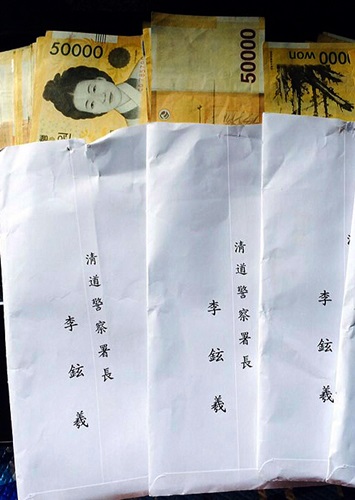 50000
50000
000 won
清道警察署長
李鉉羲
清道警察署長
李鉉羲
李鉉羲